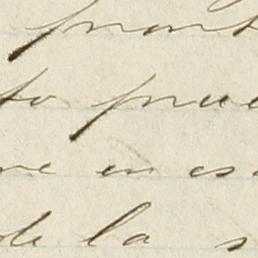 pront
to prue
ve en es
de la s